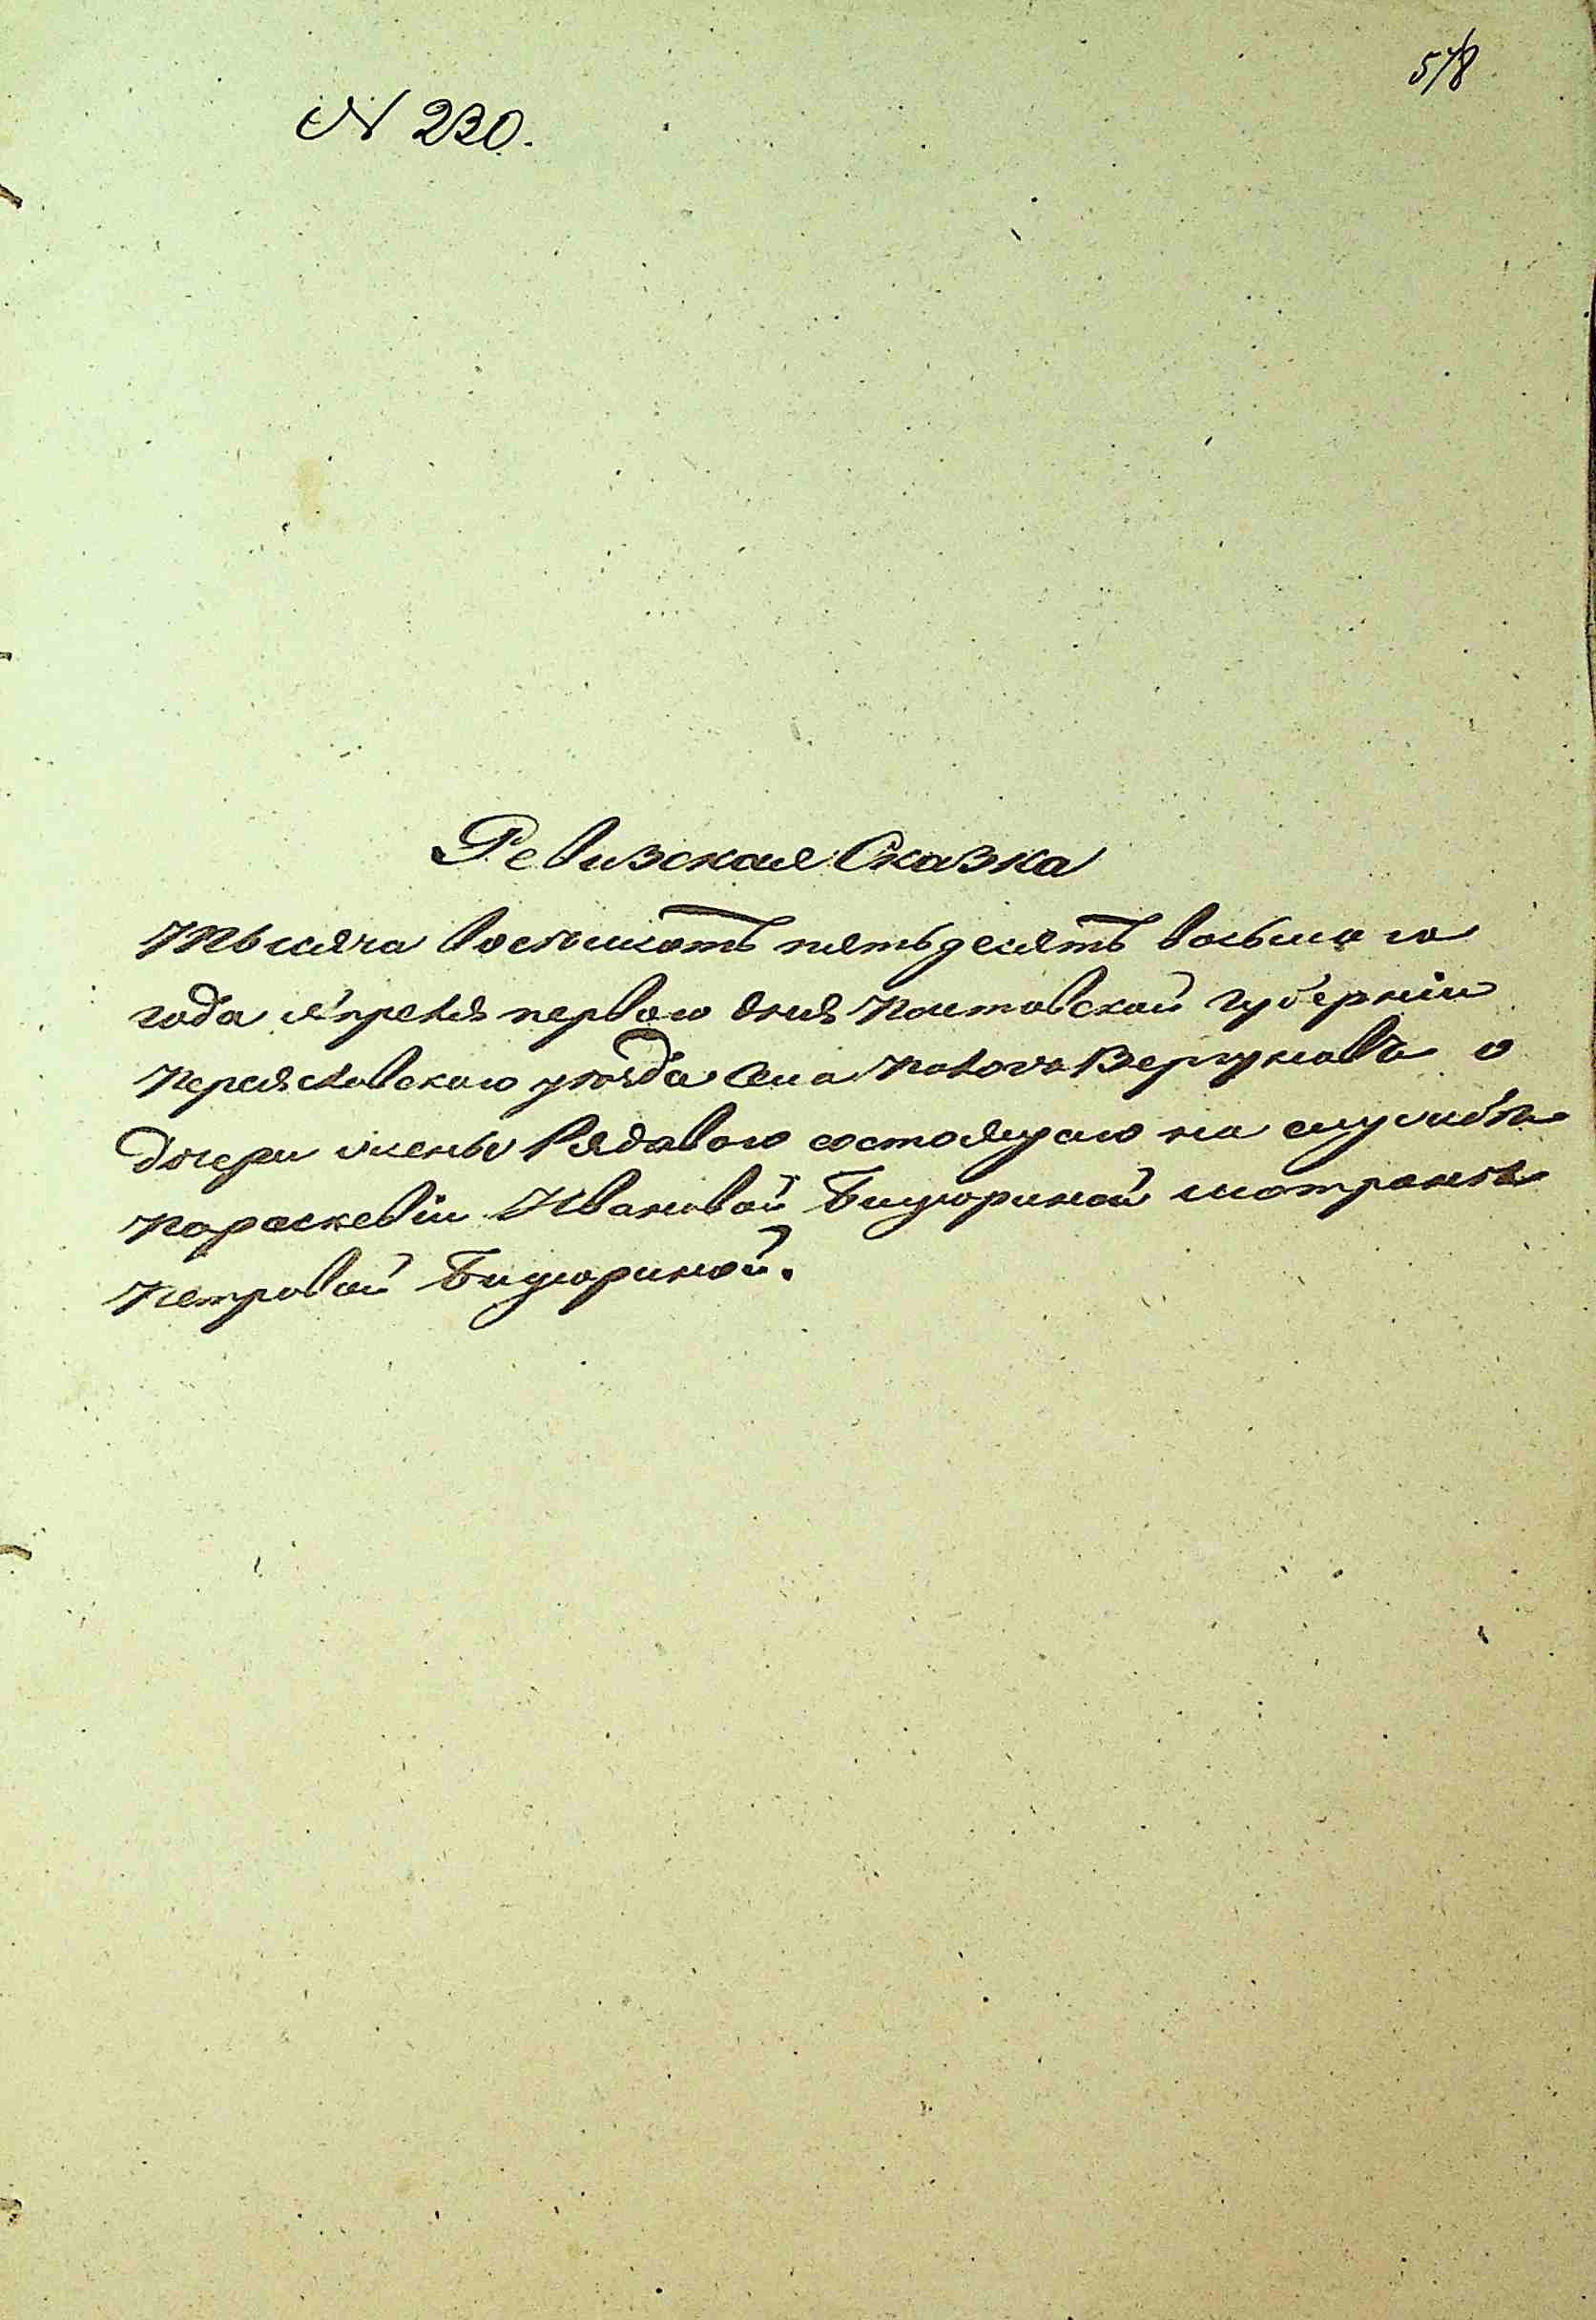 578
N 230.
Ревизская Сказка
Тысяча восемьсотъ пятьдесятъ восьмаго
года Апреля первого дня Полтавской губерніи
Переясловского уѣзда села Вергуновъ о
дочери жены Рядового состоящаго на службѣ
Параскевіи Ивановой Бицюриной Мотронѣ
Петровой Бицюриной.